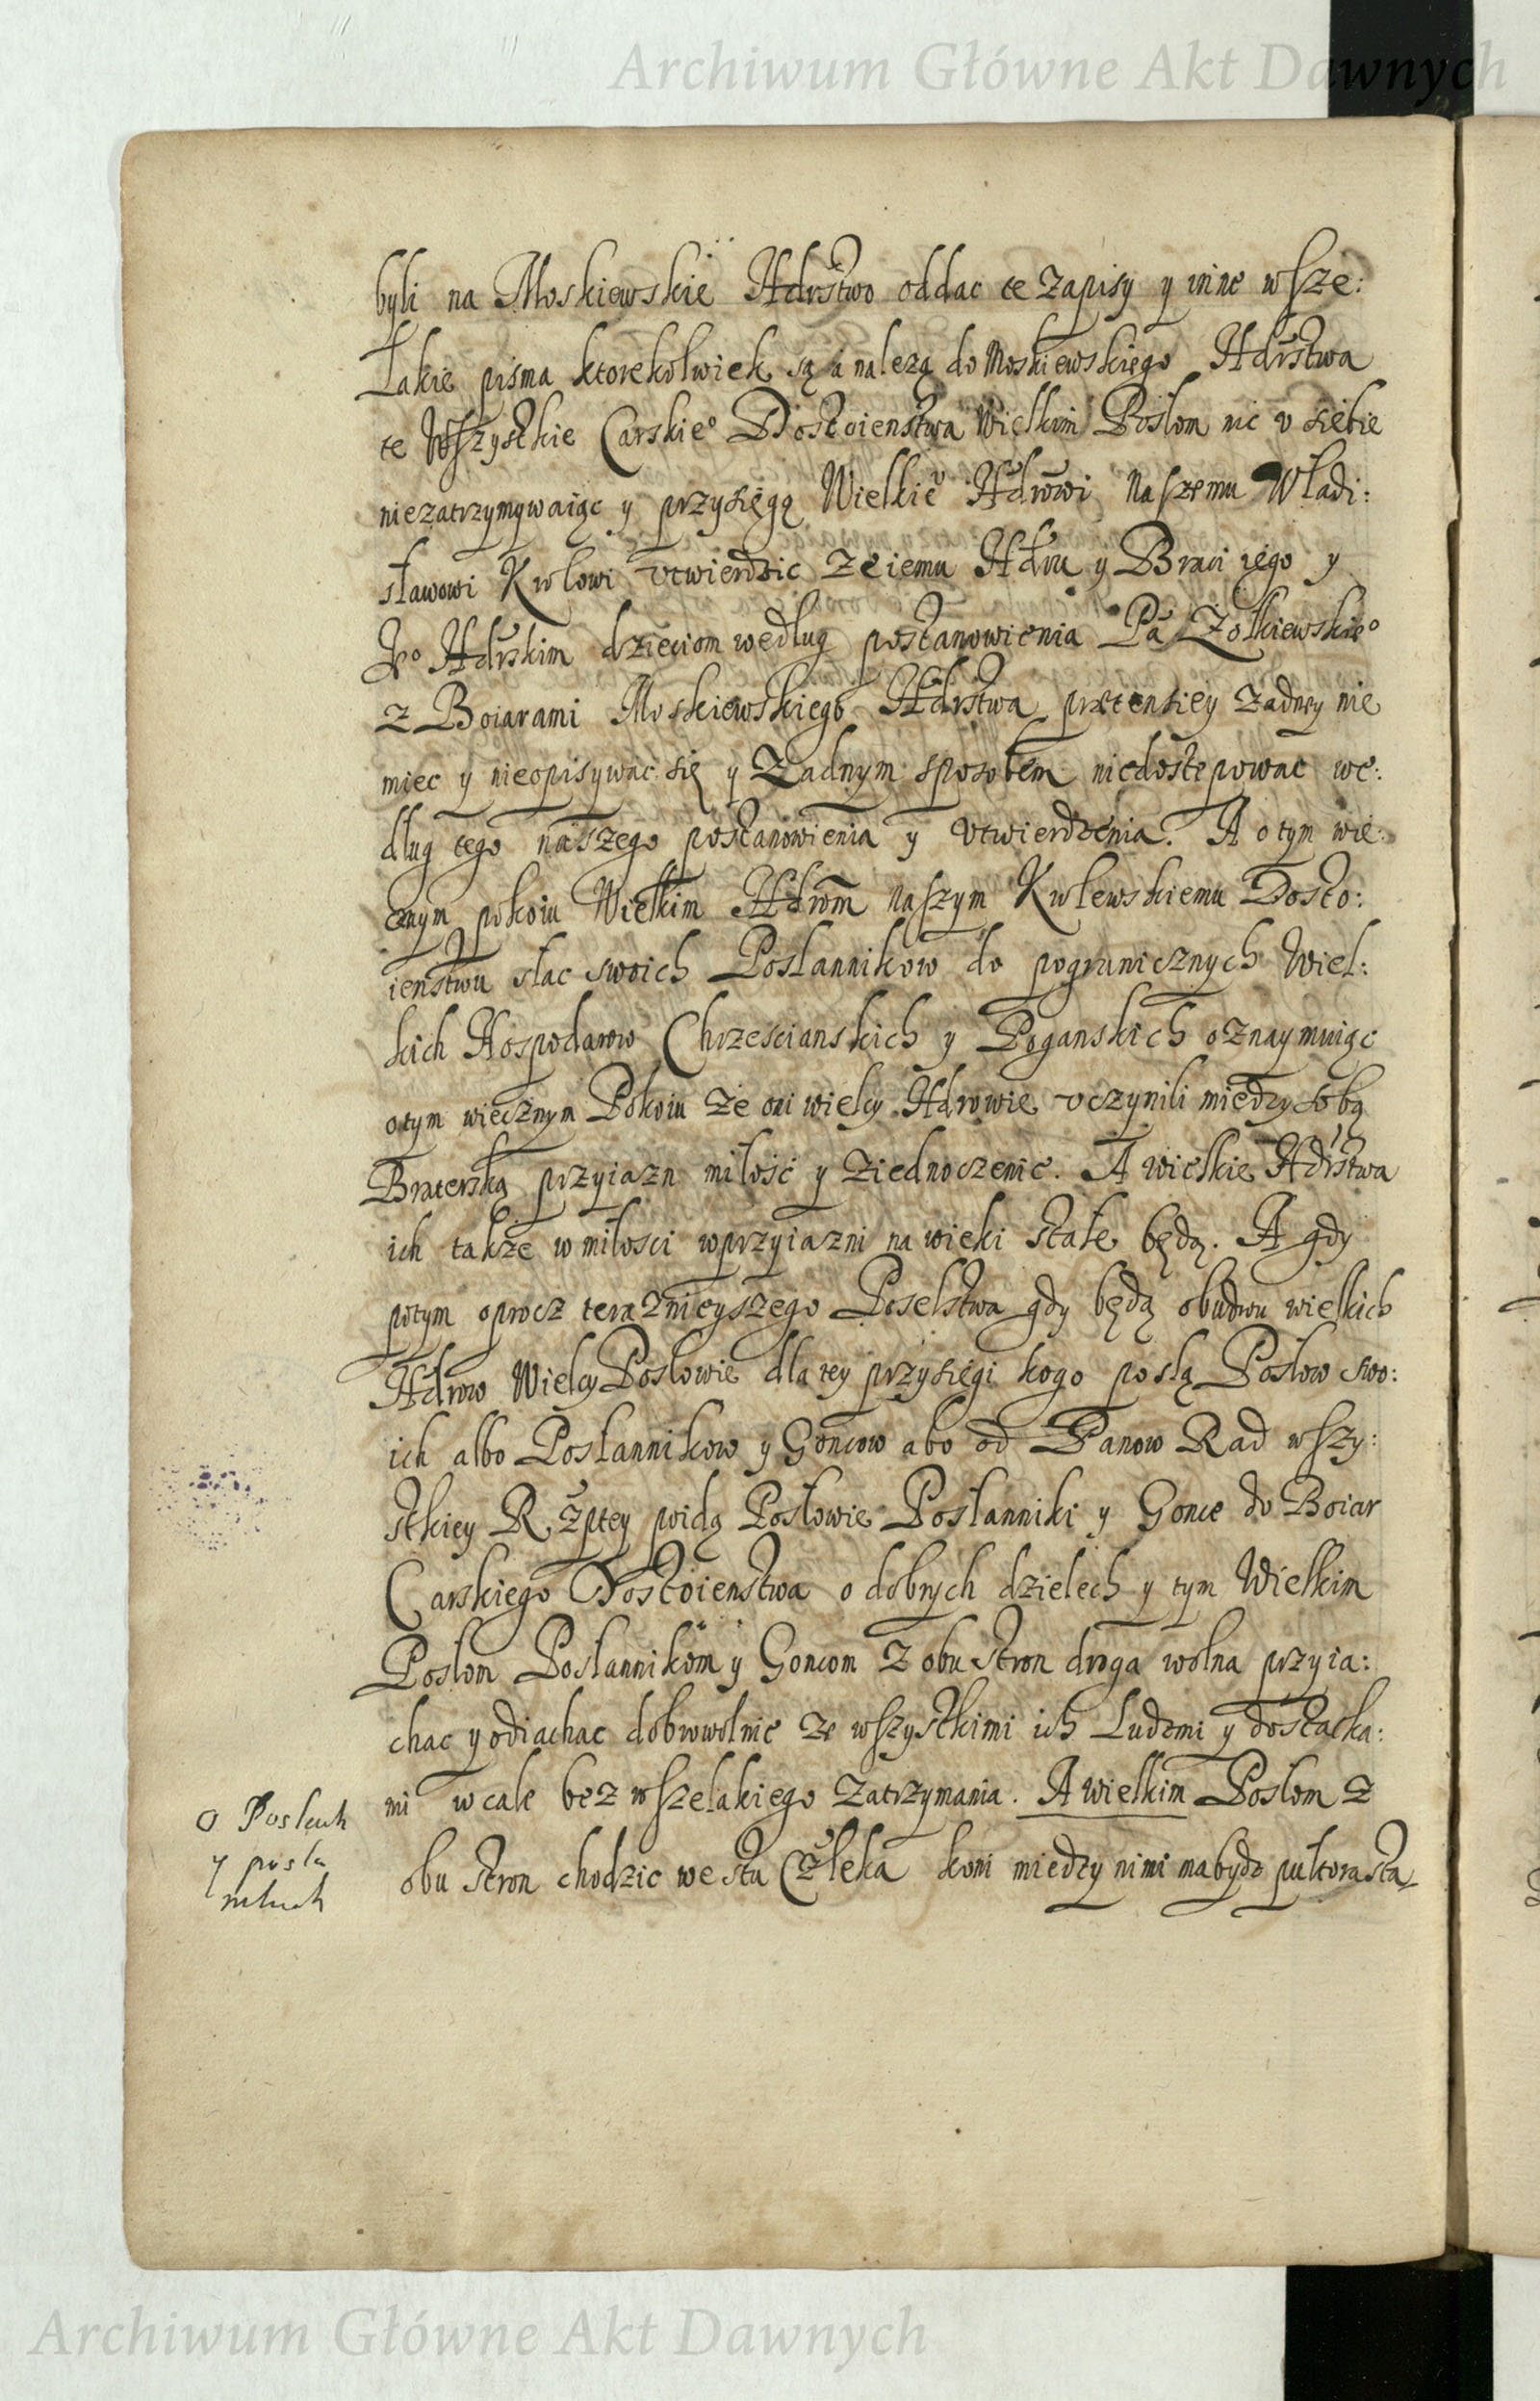 Archiwum Główne Akt Dawnych
byli na Moskiewskie Hdrstwo oddac te zapisy y inne wsze:
lakie pisma ktorekolwiek są a nalezą do Moskiewskiego Hdrstwa
te wszystkie Carskieo Dostoienstwa Wielkim Posłom nic v siebie
niezatrzymywaiąc y przysięgą Wielkie Hdrowi Naszemu Władi:
sławowi Krolowi vtwierdzic ze iemu Hdru y Braci iego y
Jeo Hdrskim dzieciom według postanowienia Pa Żołkiewskieo
z Boiarami Moskiewskiego Hdrstwa pretensiey zadney nie
miec y nieopisywac się y Zadnym sposobem niedostepowac we:
dług tego naszego postanowienia y vtwierdzenia. A o tym wie:
cznym pokoiu Wielkim Hdrom naszym Krolewskiemu Dosto:
ienstwu słac swoich Posłannikow do pogranicznych Wiel:
kich Hospodarow Chrzescianskich y Poganskich oznaymuiąc
otym wiecznym Pokoiu że oni wielcy Hdrowie vczynili między sobą
Braterską przyiazn miłość y ziednoczenie. A wielkie Hdrstwa
ich także w miłosci w przyiazni na wieki stałe będą. A gdy
potym oprocz teraznieyszego Poselstwa gdy będą obudwu wielkich
Hdrow Wielcy Posłowie dla tey przysięgi kogo poslą Posłow swo:
ich albo Posłannikow y Goncow abo od Panow Rad wszy:
stkiey R. żptey poidą Posłowie Posłanniki y Gonce do Boiar
Carskiego Dostoienstwa o dobrych dzielech y tym Wielkim
Posłom Posłannikom y Goncom z obu stron droga wolna przyia:
chac y odiachac dobrowolnie ze wszystkimi ich Ludzmi y dostatka:
mi w cale bez wszelakiego zatrzymania. A wielkim Posłom z
obu stron chodzic we stu Człeka koni miedzy nimi ma bydz pułtorasta
O Posłach
y posła
nikach
Archiwum Główne Akt Dawnych